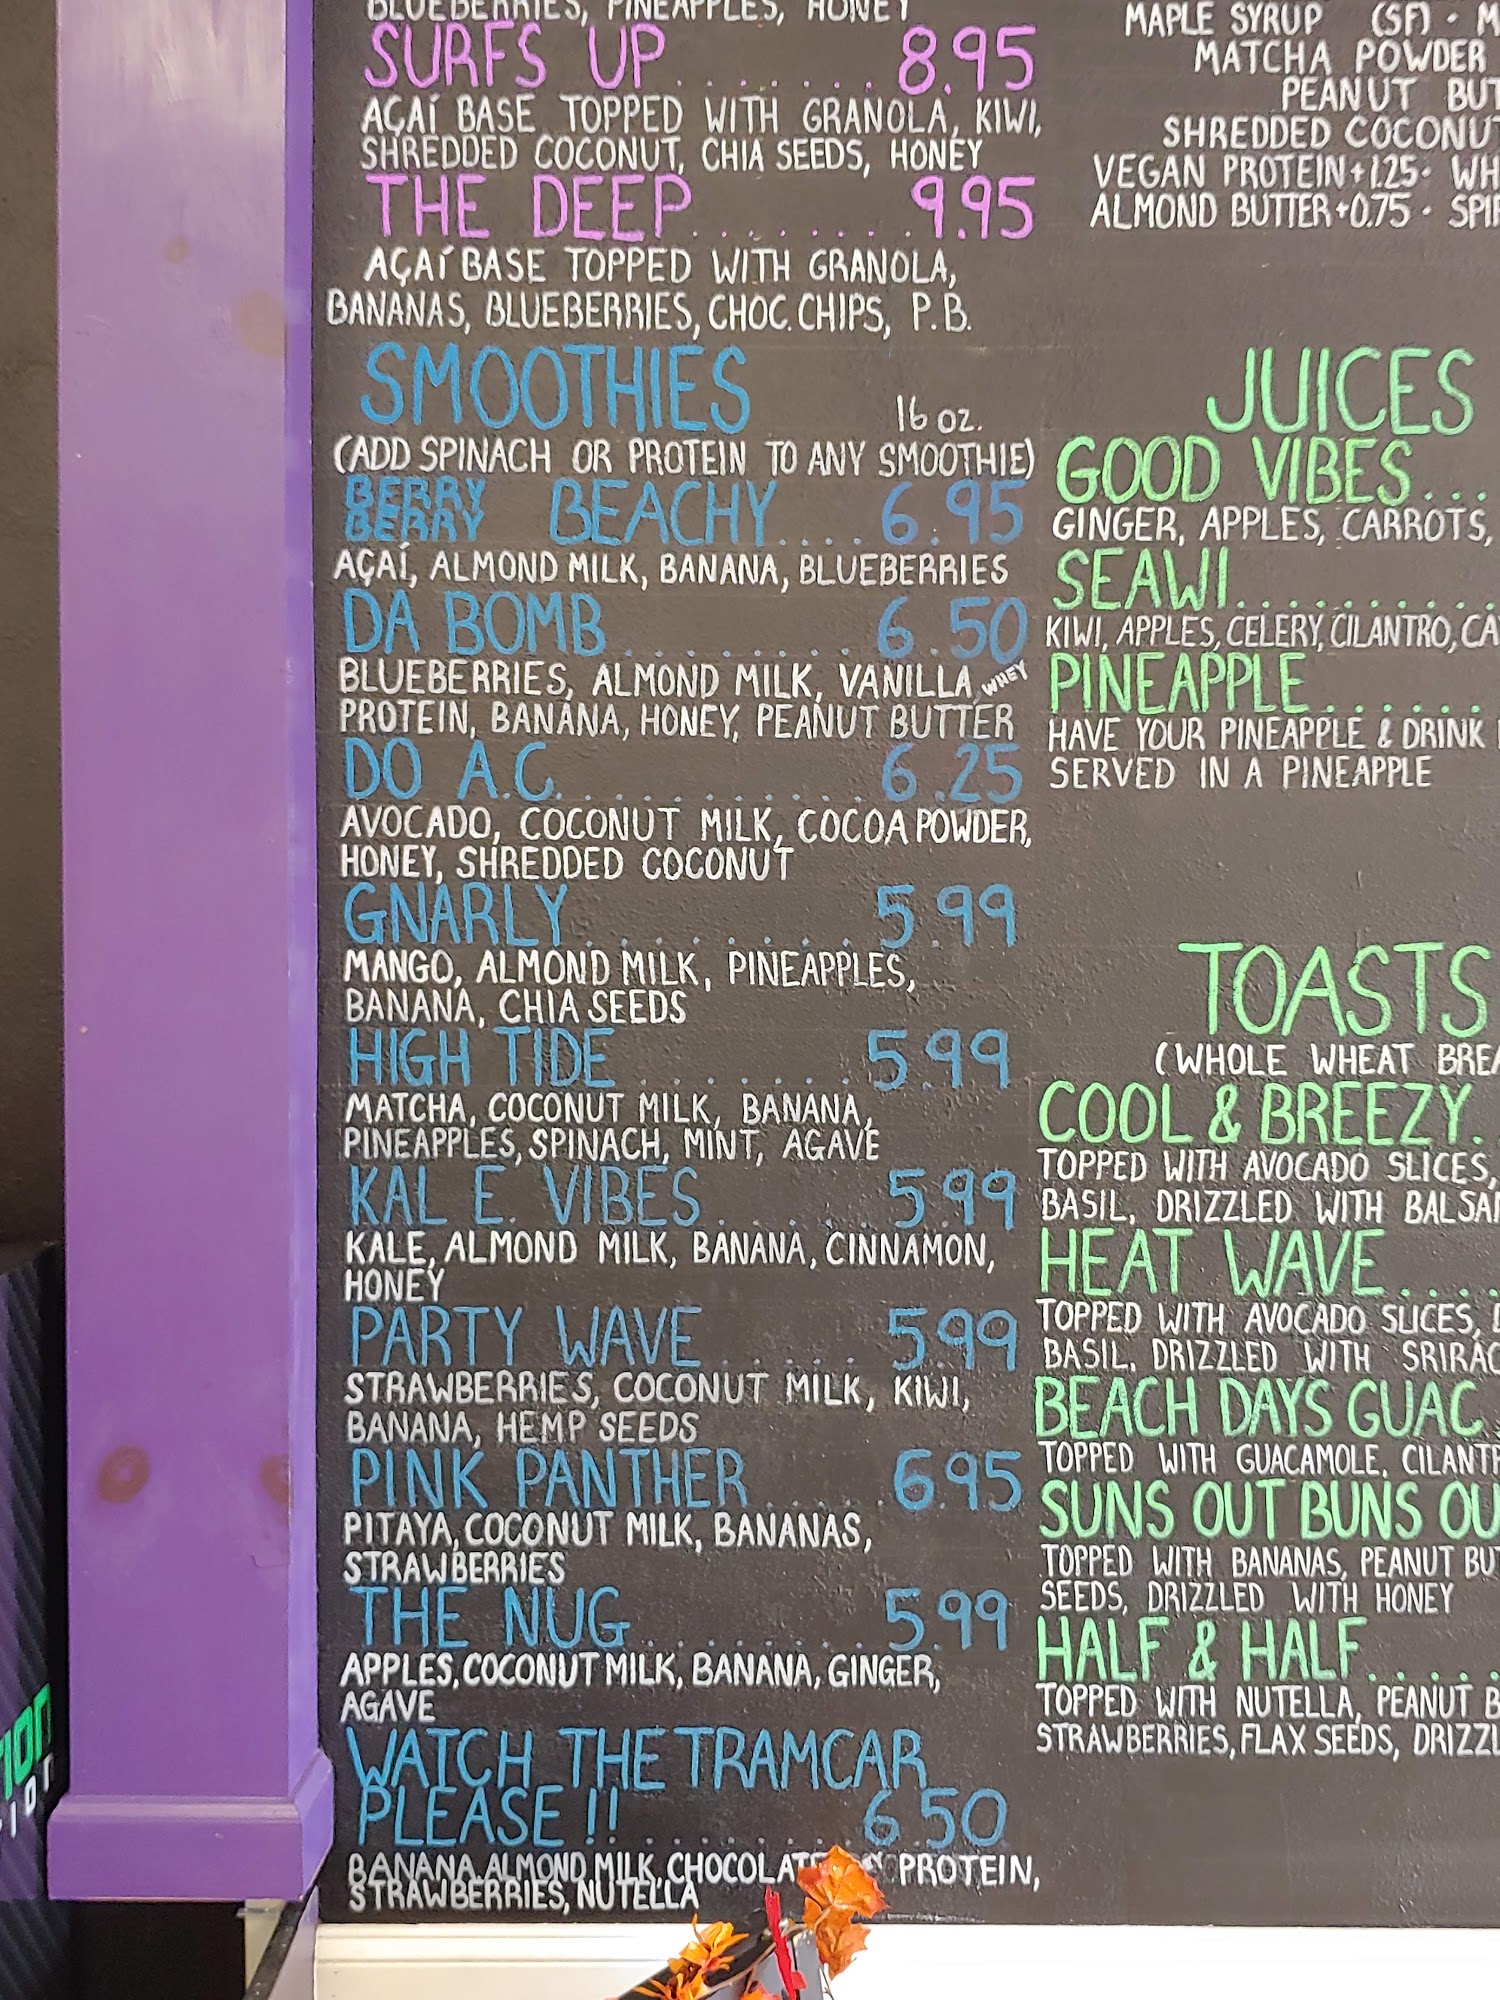 BLUEBERRIES, PINEAPPLES, HONEY
SURFS UP........8.95
AÇAÍ BASE TOPPED WITH GRANOLA, KIWI,
SHREDDED COCONUT, CHIA SEEDS, HONEY
THE DEEP........9.95
AÇAÍ BASE TOPPED WITH GRANOLA,
BANANAS, BLUEBERRIES, CHOC. CHIPS, P.B.
SMOOTHIES 16 OZ.
(ADD SPINACH OR PROTEIN TO ANY SMOOTHIE)
BERRY BERRY BEACHY....6.95
AÇAÍ, ALMOND MILK, BANANA, BLUEBERRIES
DA BOMB.........6.50
BLUEBERRIES, ALMOND MILK, VANILLA WHEY
PROTEIN, BANANA, HONEY, PEANUT BUTTER
DO A.C..........6.25
AVOCADO, COCONUT MILK, COCOA POWDER,
HONEY, SHREDDED COCONUT
GNARLY.........5.99
MANGO, ALMOND MILK, PINEAPPLES,
BANANA, CHIA SEEDS
HIGH TIDE.......5.99
MATCHA, COCONUT MILK, BANANA,
PINEAPPLES, SPINACH, MINT, AGAVE
KAL E. VIBES.....5.99
KALE, ALMOND MILK, BANANA, CINNAMON,
HONEY
PARTY WAVE.....5.99
STRAWBERRIES, COCONUT MILK, KIWI,
BANANA, HEMP SEEDS
PINK PANTHER....6.95
PITAYA, COCONUT MILK, BANANAS,
STRAWBERRIES
THE NUG........5.99
APPLES, COCONUT MILK, BANANA, GINGER,
AGAVE
WATCH THE TRAMCAR
PLEASE!!.......6.50
BANANA, ALMOND MILK, CHOCOLATE PROTEIN,
STRAWBERRIES, NUTELLA
MAPLE SYRUP (SF) •
MATCHA POWDER
PEANUT
SHREDDED COCONUT
VEGAN PROTEIN +1.25 •
ALMOND BUTTER +0.75 •
JUICES
GOOD VIBES...
GINGER, APPLES, CARROTS,
SEAWI..........
KIWI, APPLES, CELERY, CILANTRO,
PINEAPPLE......
HAVE YOUR PINEAPPLE & DRINK
SERVED IN A PINEAPPLE
TOASTS
(WHOLE WHEAT
COOL & BREEZY.
TOPPED WITH AVOCADO SLICES,
BASIL, DRIZZLED WITH
HEAT WAVE....
TOPPED WITH AVOCADO SLICES,
BASIL, DRIZZLED WITH
BEACH DAYS GUAC
TOPPED WITH GUACAMOLE,
SUNS OUT BUNS
TOPPED WITH BANANAS, PEANUT
SEEDS, DRIZZLED WITH HONEY
HALF & HALF.....
TOPPED WITH NUTELLA, PEANUT
STRAWBERRIES, FLAX SEEDS,